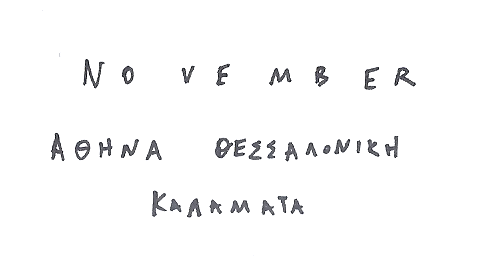 NOVEMBER
ΑΘΗΝΑ ΘΕΣΣΑΛΟΝΙΚΗ
ΚΑΛΑΜΑΤΑ